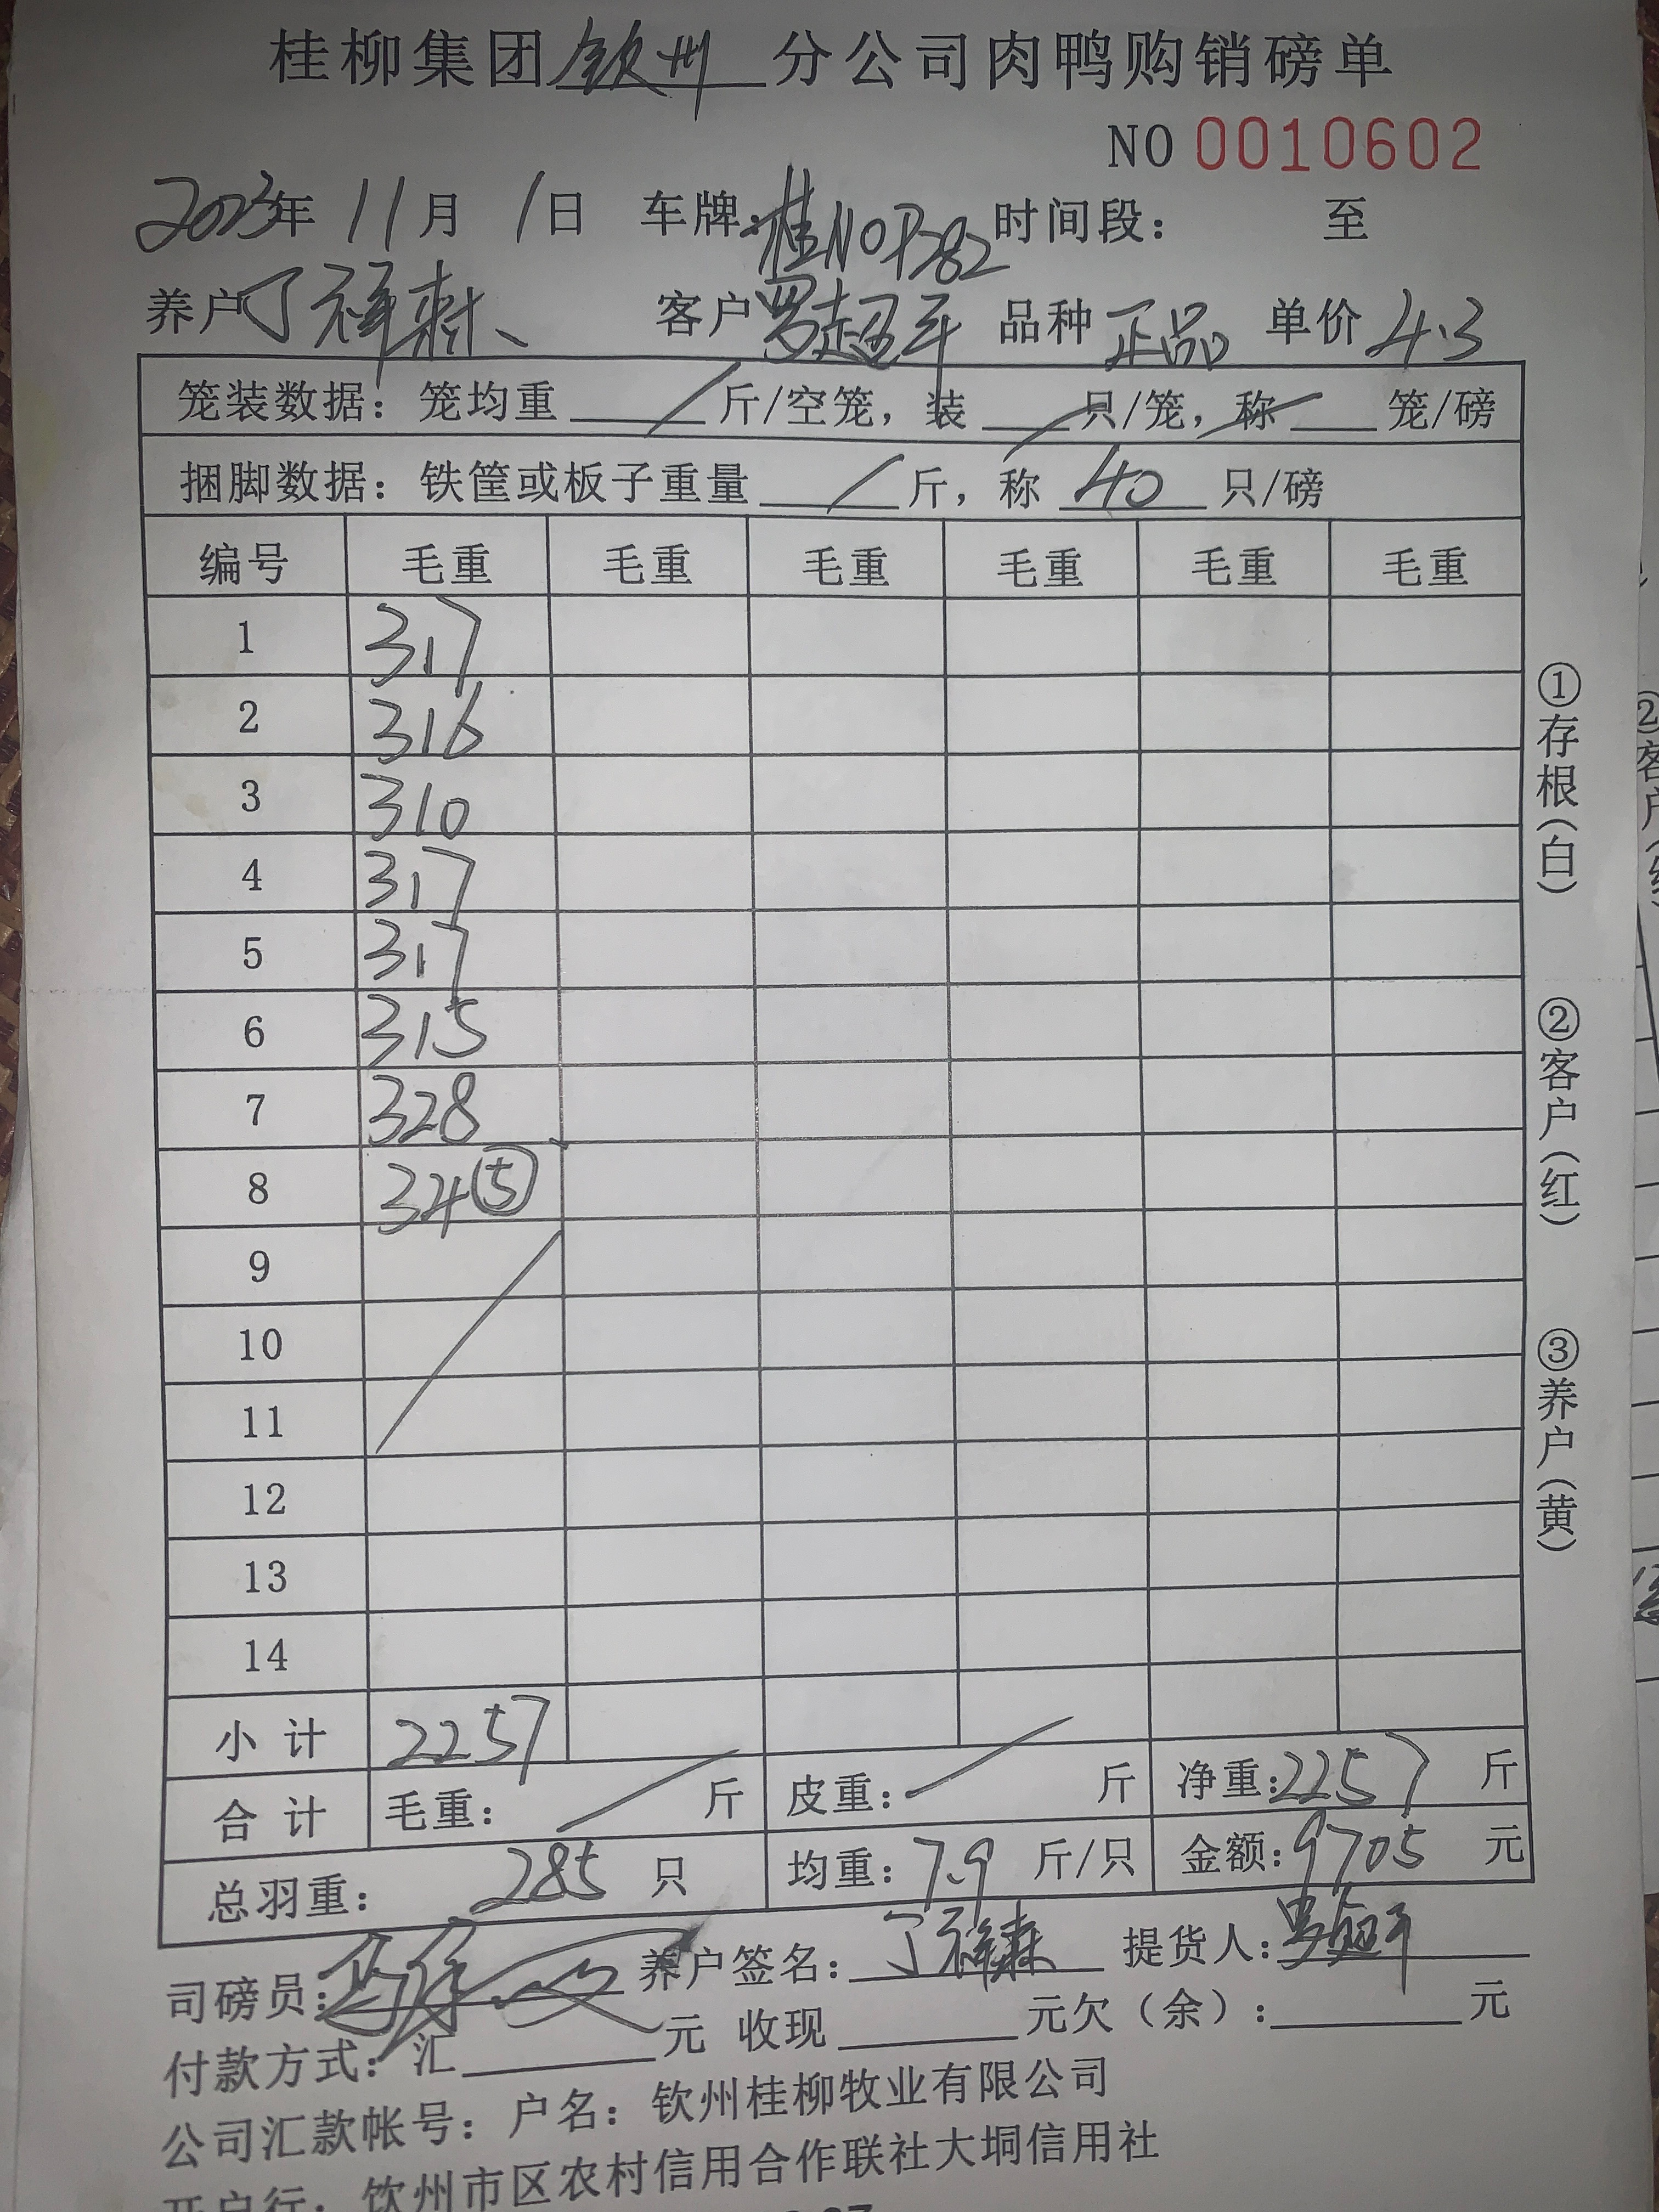 桂柳集团钦州分公司肉鸭购销磅单
NO 0010602
2023年 11月 1日 车牌:桂N0P282 时间段: 至
养户丁祥森 客户罗超平 品种正品 单价4.3
笼装数据: 笼均重 / 斤/空笼, 装 / 只/笼, 称 / 笼/磅
捆脚数据: 铁筐或板子重量 / 斤, 称 40 只/磅
编号 毛重 毛重 毛重 毛重 毛重 毛重
1 317
2 316
3 310
4 317
5 317
6 315
7 328
8 34⑤
9
10
11
12
13
14
小计 2257
合计 毛重: / 斤 皮重: / 斤 净重:2257 斤
总羽重: 285 只 均重: 7.9 斤/只 金额:9705 元
司磅员: 养户签名: 丁祥森 提货人:罗超平
付款方式: 汇 元 收现 元欠(余): 元
公司汇款帐号: 户名: 钦州桂柳牧业有限公司
开户行: 钦州市区农村信用合作联社大垌信用社
①存根(白) ②客户(红) ③养户(黄)
②客户(红)